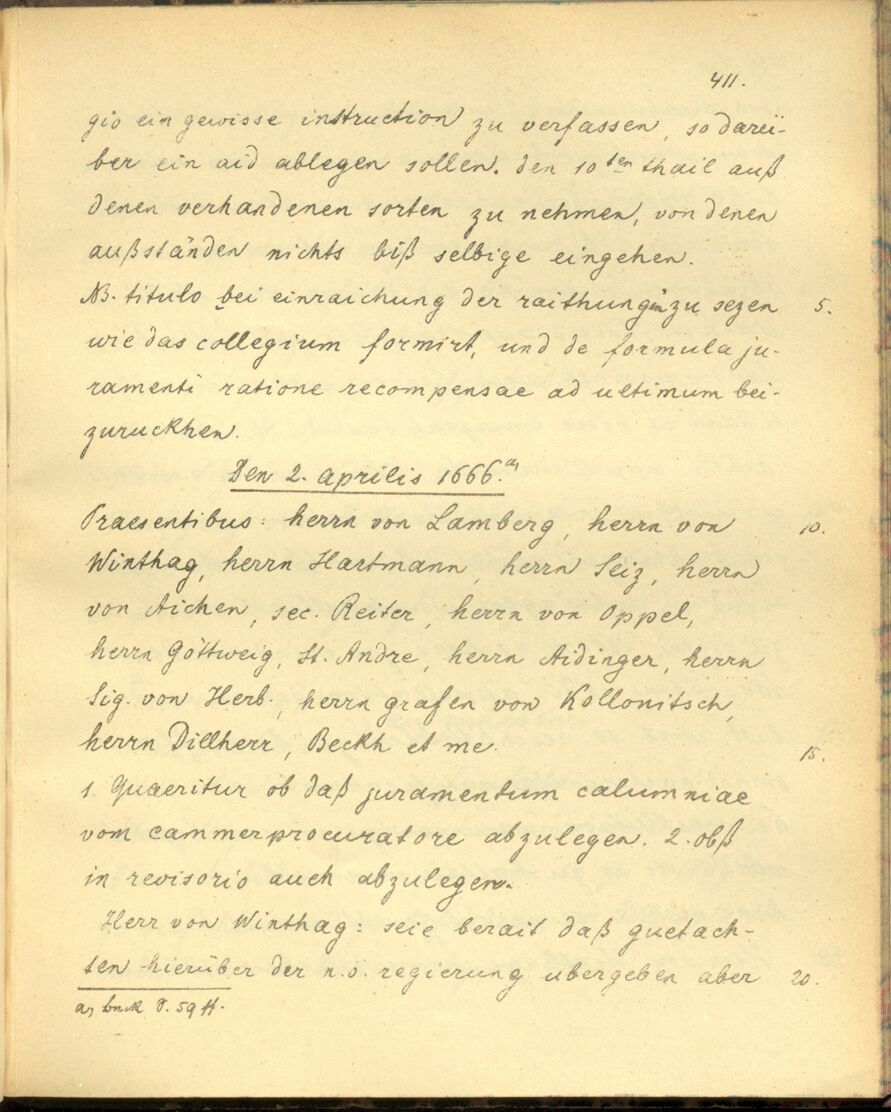 411.
gio ein gewisse instruction zu verfassen, so darü-
ber ein aid ablegen sollen. den 10ten thail auß
denen verhandenen sorten zu nehmen, von denen
außständen nichts biß selbige eingehen.
NB. titulo bei einraichung der raithungen zu sezen 5.
wie das collegium formirt, und de formula ju-
ramenti ratione recompensae ad ultimum bei-
zuruckhen.
Den 2. aprilis 1666.a)
Praesentibus: herrn von Lamberg, herrn von 10.
Winthag, herrn Hartmann, herrn Seiz, herrn
von Aichen, sec. Reiter, herrn von Oppel,
herrn Göttweig, St. Andre, herrn Aidinger, herrn
Sig. von Herb., herrn grafen von Kollonitsch,
herrn Dillherr, Beckh et me. 15.
1. Quaeritur ob daß juramentum calumniae
vom cammerprocuratore abzulegen. 2. obß
in revisorio auch abzulegen.
Herr von Winthag: seie berait daß guetach-
ten hierüber der n.ö. regierung ubergeben aber 20.
a) 59 ff.